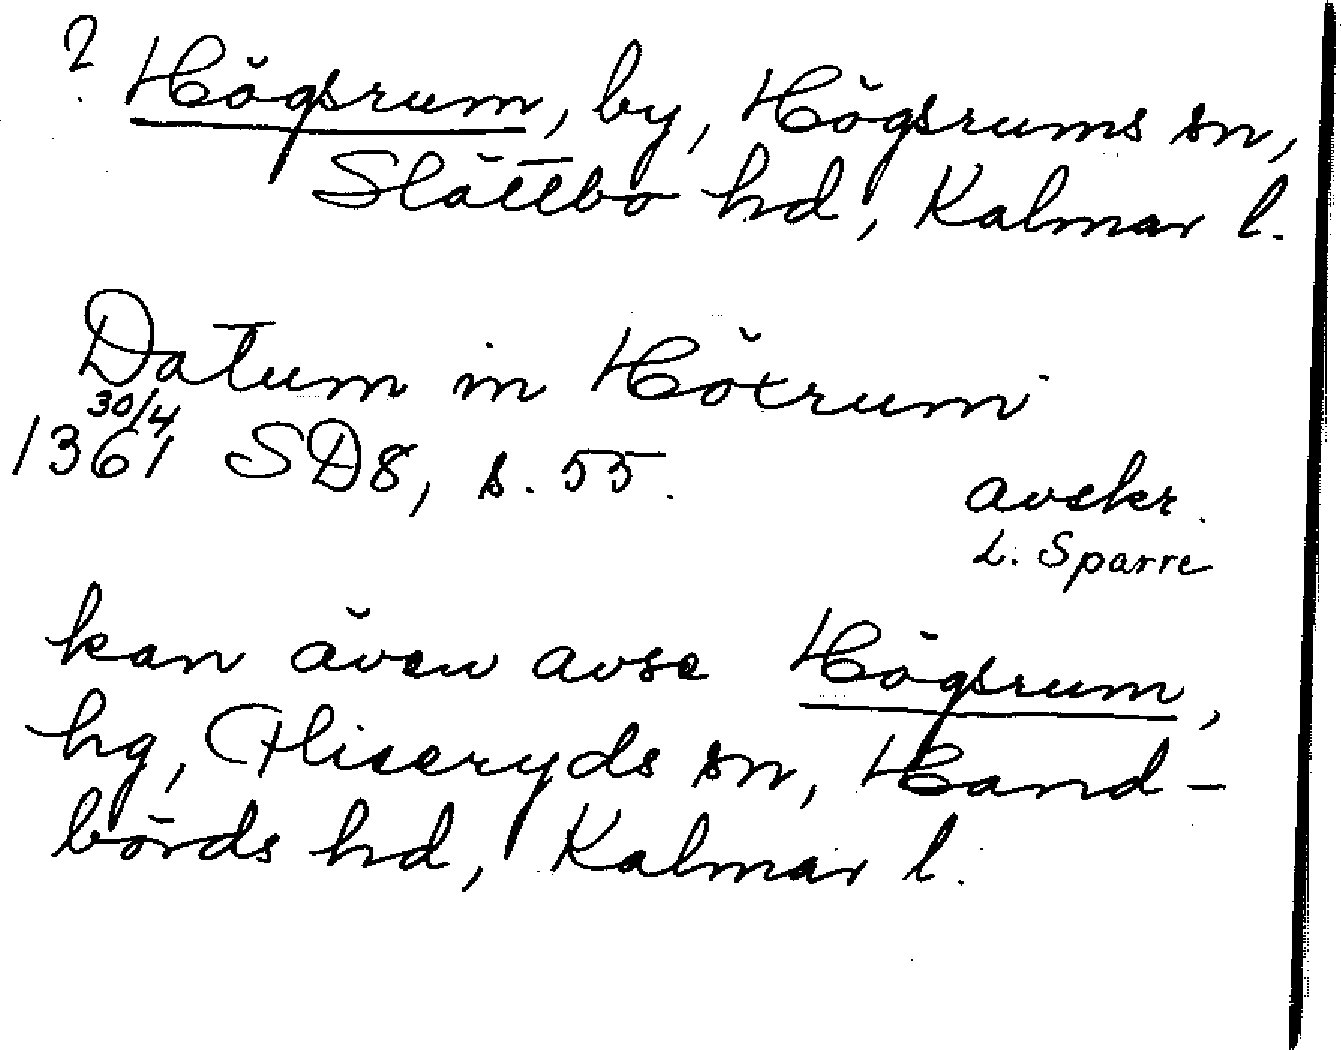 ? Högsrum, by, Högsrums sn,
Slättbo hd, Kalmar l.
Datum in Höxrum
30/4
1361 SD8, s. 55.
avskr.
L. Sparre
kan även avse Högsrum,
hg, Fliseryds sn, Hand-
börds hd, Kalmar l.